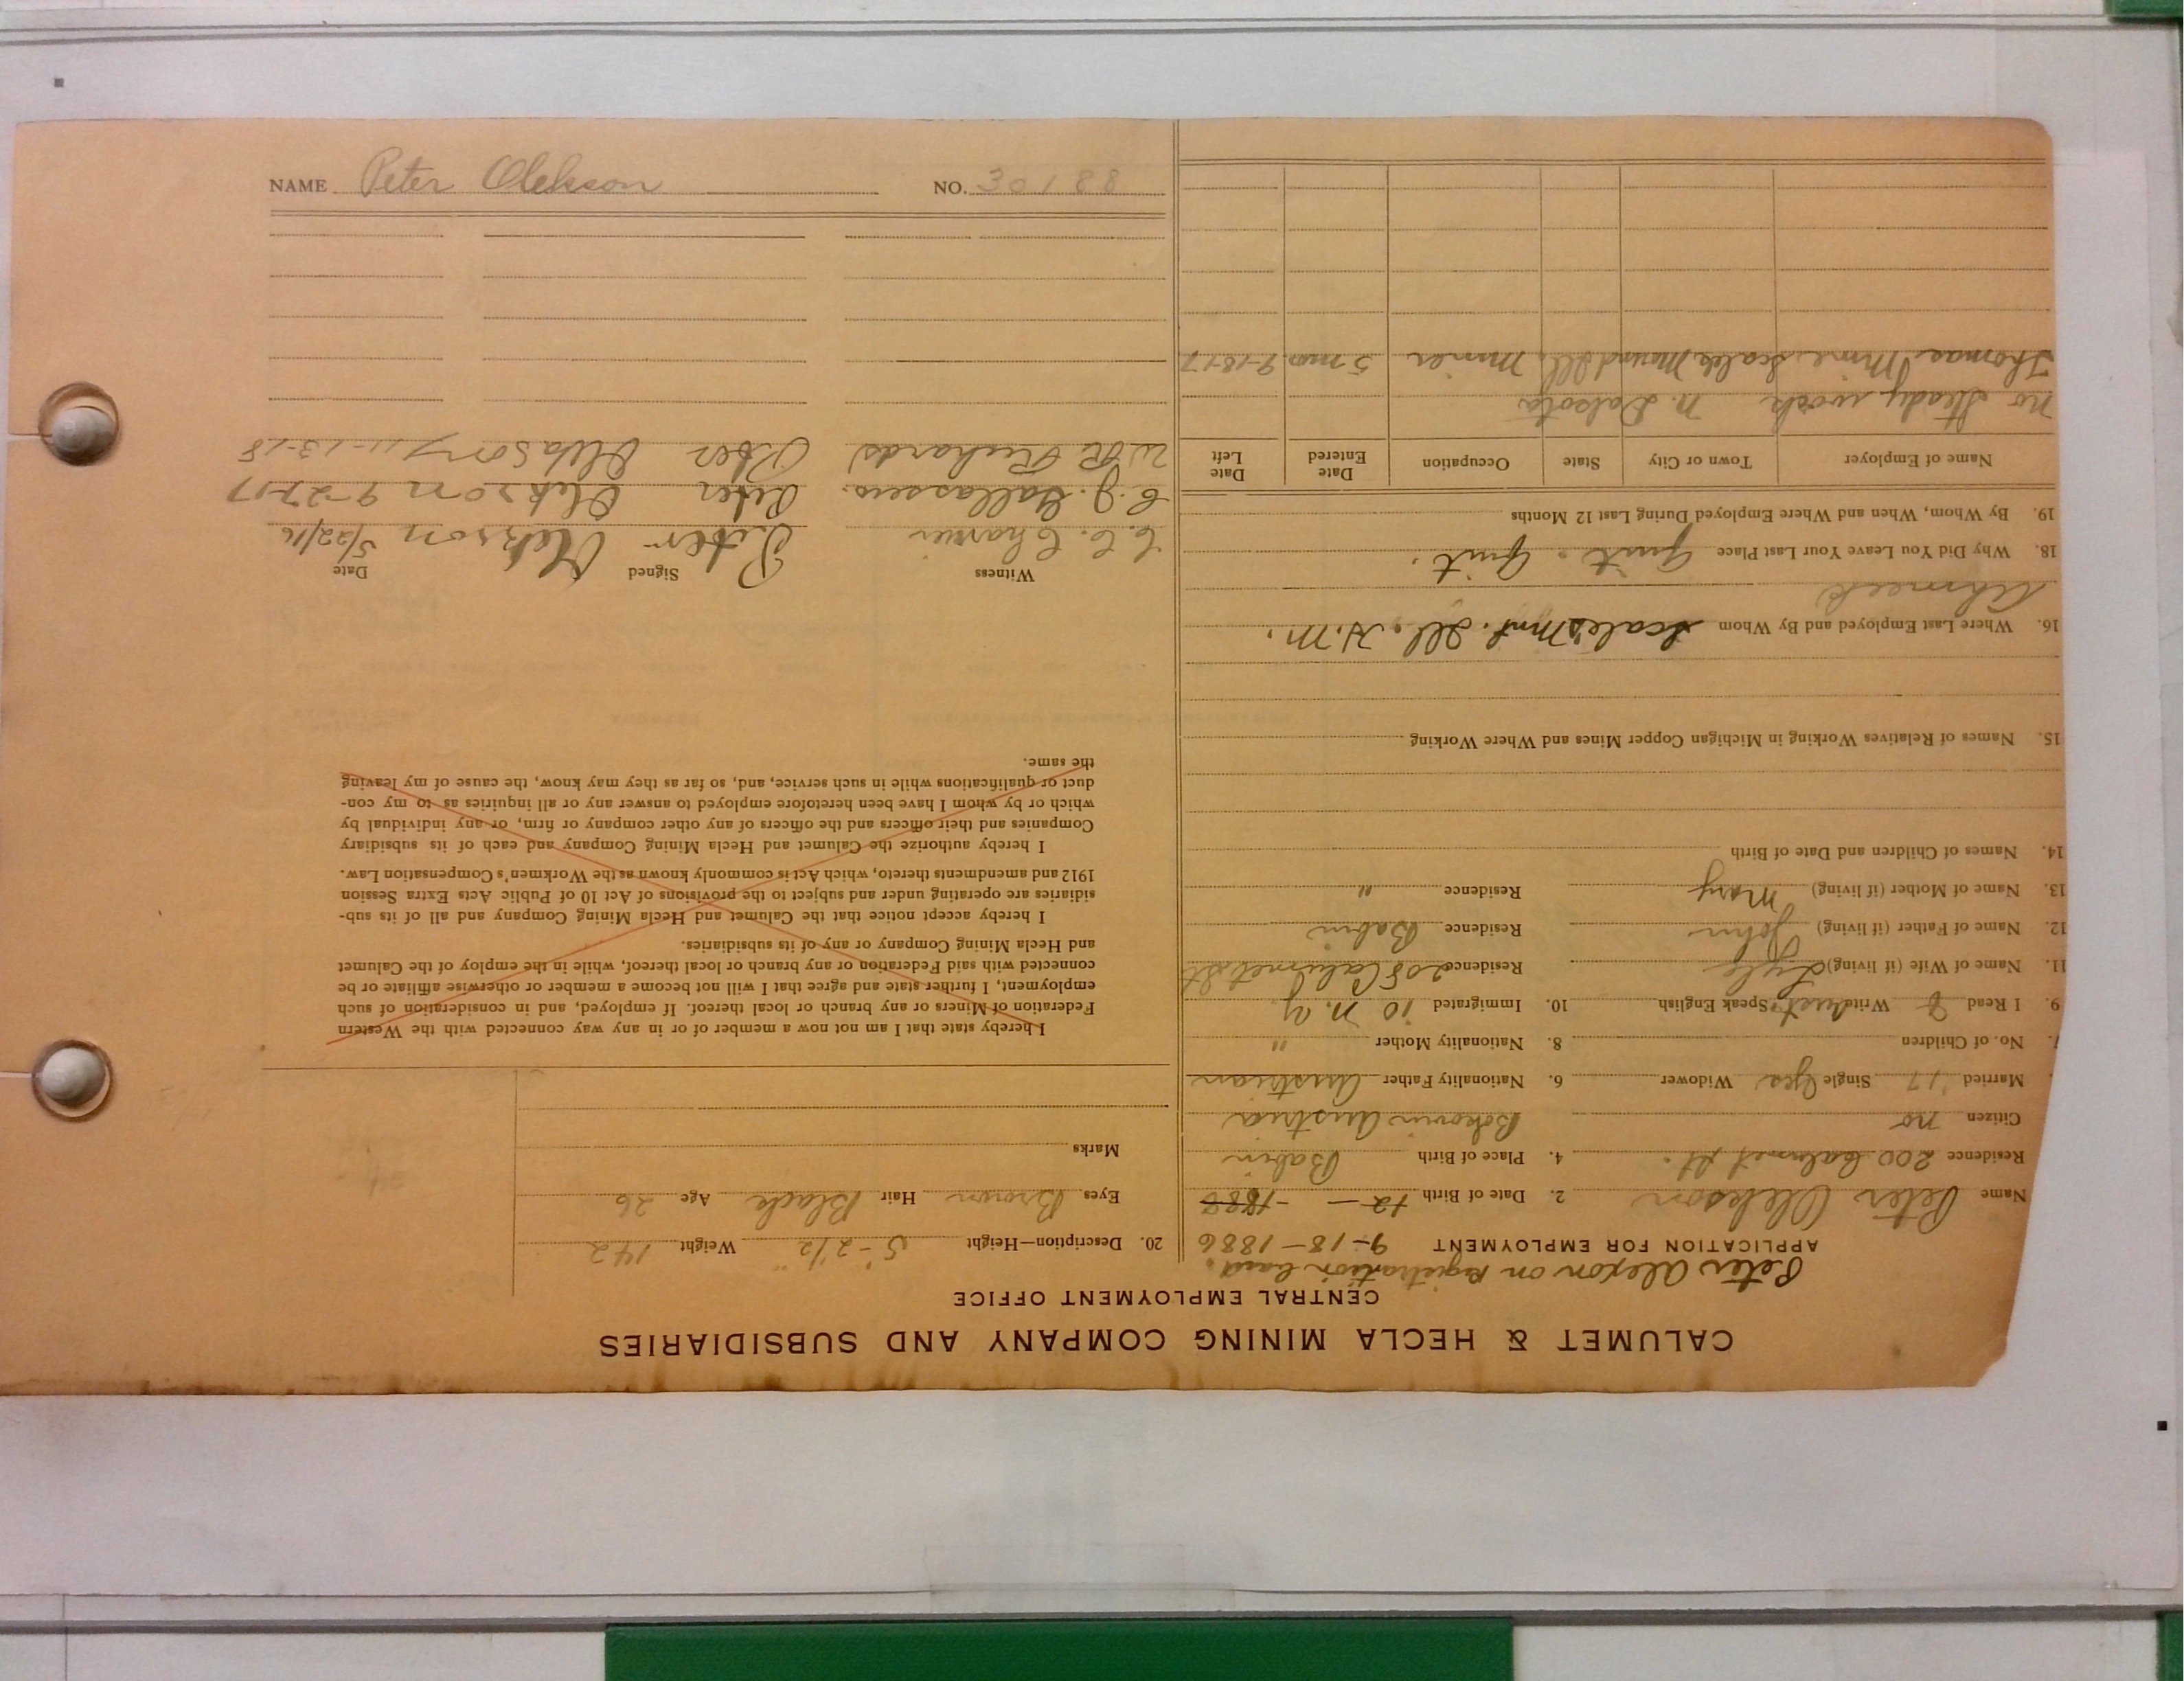 CALUMET & HECLA MINING COMPANY AND SUBSIDIARIES
CENTRAL EMPLOYMENT OFFICE
Peter Alexon on registration card.
APPLICATION FOR EMPLOYMENT 9-18-1886
Name Peter Olekson 2. Date of Birth 12 — -1888
Residence 200 Calumet St. 4. Place of Birth Babin
Citizen no Bokovin Austria
Married '17 Single Yes Widower 6. Nationality Father Austrian
7. No. of Children 8. Nationality Mother "
9. I Read & Write Speak English 10. Immigrated 10 N.Y.
11. Name of Wife (if living) Residence 208 Calumet St
12. Name of Father (if living) John Residence Babin
13. Name of Mother (if living) Mary Residence "
14. Names of Children and Date of Birth
15. Names of Relatives Working in Michigan Copper Mines and Where Working
16. Where Last Employed and By Whom Scales Mnt. Ill. H.M.
Ahmeek
18. Why Did You Leave Your Last Place Quit. Quit.
19. By Whom, When and Where Employed During Last 12 Months
Name of Employer Town or City State Occupation Date Entered Date Left
No steady work N. Dakota
Thomas Mine Scales Mound Ill. Miner 5 mos. 9-18-17
20. Description—Height 5-2 1/2 Weight 142
Eyes Brown Hair Black Age 26
Marks
I hereby state that I am not now a member of or in any way connected with the Western
Federation of Miners or any branch or local thereof. If employed, and in consideration of such
employment, I further state and agree that I will not become a member or otherwise affiliate or be
connected with said Federation or any branch or local thereof, while in the employ of the Calumet
and Hecla Mining Company or any of its subsidiaries.
I hereby accept notice that the Calumet and Hecla Mining Company and all of its sub-
sidiaries are operating under and subject to the provisions of Act 10 of Public Acts Extra Session
1912 and amendments thereto, which Act is commonly known as the Workmen's Compensation Law.
I hereby authorize the Calumet and Hecla Mining Company and each of its subsidiary
Companies and their officers and the officers of any other company or firm, or any individual by
which or by whom I have been heretofore employed to answer any or all inquiries as to my con-
duct or qualifications while in such service, and, so far as they may know, the cause of my leaving
the same.
Witness Signed Date
C. C. Peter Olekson 5/22/16
C. J. Peter Olekson 9-27-17
W R Richards Peter Oleksony 11-13-18
NAME Peter Olekson NO. 30188